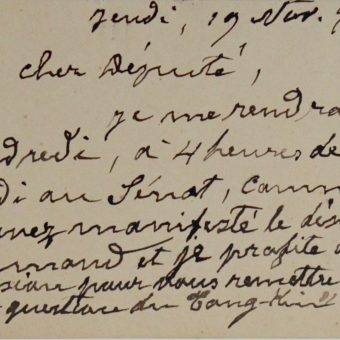 Jeudi, 19 Nov.
cher Député,
je me rendra
dredi, à 4 heures de
di au Sénat, comm
avez manifesté le dés
mand et je profite
sion pour vous remettre
question du Tong-Kin"